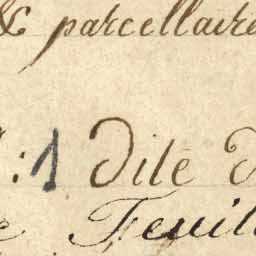 & parcellaire
:1 Dite d
e Feuill